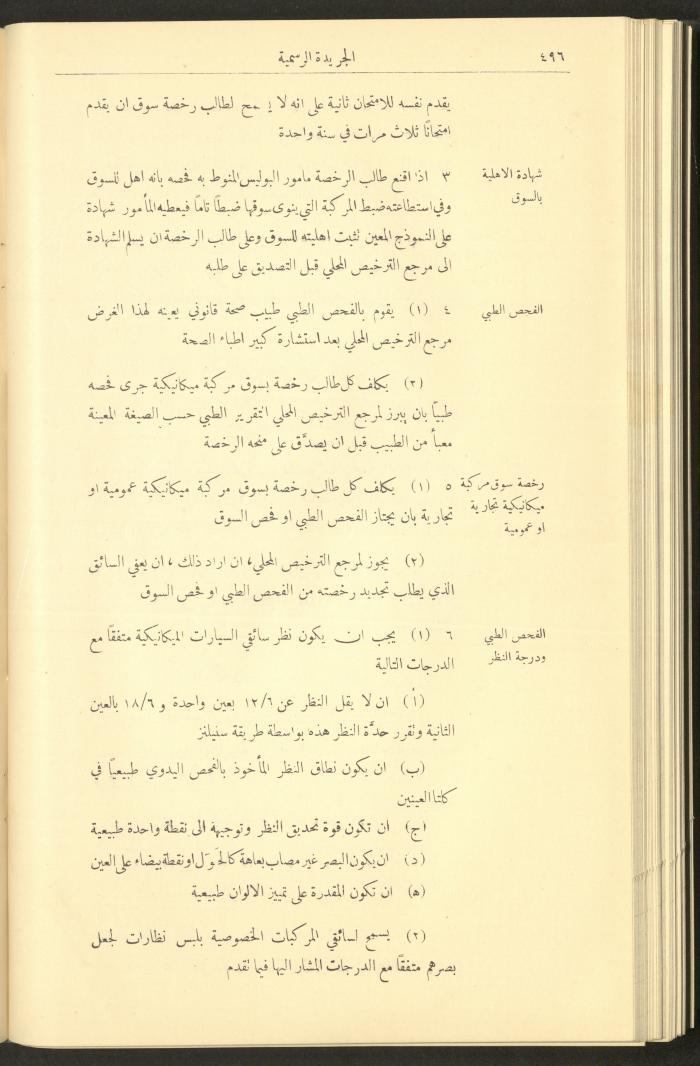 ٤٩٦
الجريدة الرسمية
يقدم نفسه للامتحان ثانية على انه لا يسمح لطالب رخصة سوق ان يقدم
امتحانًا ثلاث مرات في سنة واحدة
شهادة الاهلية
بالسوق
٣ اذا اقنع طالب الرخصة مامور البوليس المنوط به فحصه بانه اهل للسوق
وفي استطاعته ضبط المركبة التي ينوي سوقها ضبطًا تامًا فيعطيه المأمور شهادة
على النموذج المعين تثبت اهليته للسوق وعلى طالب الرخصة ان يسلم الشهادة
الى مرجع الترخيص المحلي قبل التصديق على طلبه
الفحص الطبي
٤ (١) يقوم بالفحص الطبي طبيب صحة قانوني يعينه لهذا الغرض
مرجع الترخيص المحلي بعد استشارة كبير اطباء الصحة
(٢) يكلف كل طالب رخصة بسوق مركبة ميكانيكية جرى فحصه
طبيًا بان يبرز لمرجع الترخيص المحلي التقرير الطبي حسب الصيغة المعينة
معبأ من الطبيب قبل ان يصدَّق على منحه الرخصة
رخصة سوق مركبة
ميكانيكية تجارية
او عمومية
٥ (١) يكلف كل طالب رخصة بسوق مركبة ميكانيكية عمومية او
تجارية بان يجتاز الفحص الطبي او فحص السوق
(٢) يجوز لمرجع الترخيص المحلي، ان اراد ذلك، ان يعفي السائق
الذي يطلب تجديد رخصته من الفحص الطبي او فحص السوق
الفحص الطبي
ودرجة النظر
٦ (١) يجب ان يكون نظر سائقي السيارات الميكانيكية متفقًا مع
الدرجات التالية
(أ) ان لا يقل النظر عن ١٢/٦ بعين واحدة و ١٨/٦ بالعين
الثانية وتقرر حدَّة النظر هذه بواسطة طريقة سنيلنز
(ب) ان يكون نطاق النظر المأخوذ بالفحص اليدوي طبيعيًا في
كلتا العينين
(ج) ان تكون قوة تحديق النظر وتوجيهه الى نقطة واحدة طبيعية
(د) ان يكون البصر غير مصاب بعاهة كالحَوَل او نقطة بيضاء على العين
(ه) ان تكون المقدرة على تمييز الالوان طبيعية
(٢) يسمح لسائقي المركبات الخصوصية بلبس نظارات لجعل
بصرهم متفقًا مع الدرجات المشار اليها فيما تقدم